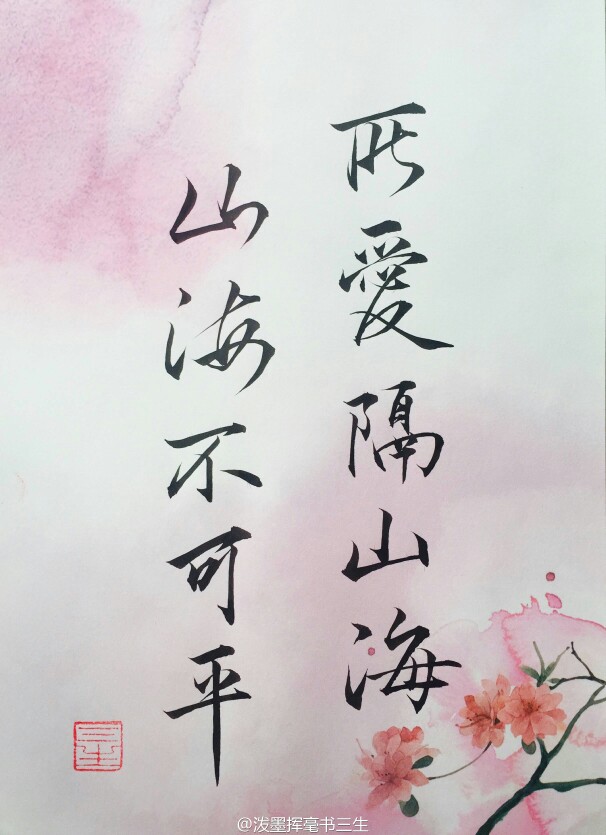 所愛隔山海
山海不可平
三生
@泼墨挥毫书三生